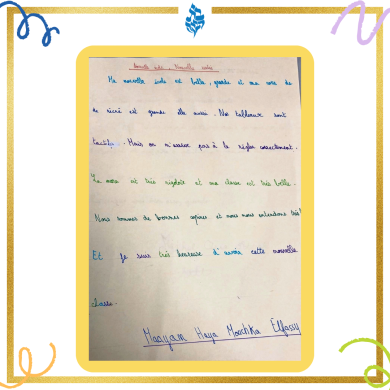 Nouvelle école, Nouvelle année
Ma nouvelle école est belle, grande et ma cour de
de récré est grande elle aussi. Nos tableaux sont
tactiles. Mais on n'arrive pas à le régler correctement.
La mora est très rigolote et ma classe est très belle.
Nous sommes de bonnes copines et nous nous entendons très!
Et je suis très heureuse d'avoir cette nouvelle
classe.
Maryam Haya Mouchka Elfassy